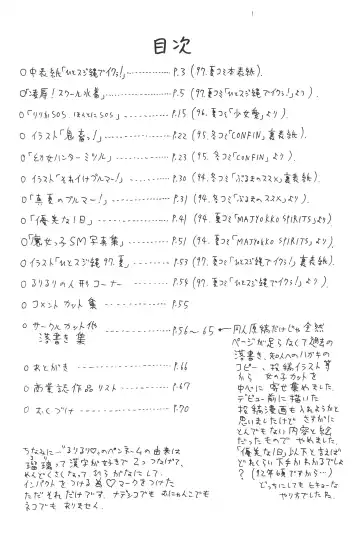 目次
○中表紙「ひとスジ縄でイクっ!」……P.3 (97.夏コミ本表紙).
○「凌辱!スクール水着」……P.5 (97.夏コミ「ひとスジ縄でイクっ!」より).
SOS ほんとにSOS」……P.15 (96.夏コミ「少女愛」より).
○イラスト「鬼畜っ!」……P.22 (95.冬コミ「CONFIN」裏表紙)
○「幼女ハンターミツル」……P.23 (95.冬コミ「CONFIN」より).
○イラスト「それイけブルマー!」……P.30 (94.冬コミ「ぶるまのススメ」裏表紙)
○「真夏のブルマー!」……P.31 (94.冬コミ「ぶるまのススメ」より)
○「優美な1日」……P.41 (94.夏コミ「MAJYOKKO SPIRITS」より)
○「魔女っ子SM写真集」……P.51 (94.夏コミ「MAJYOKKO SPIRITS」より)
○イラスト「ひとスジ縄97.夏」……P.53 (97.夏コミ「ひとスジ縄でイクっ!」裏表紙)
○るりるりの人形コーナー……P.54 (97.夏コミ「ひとスジ縄でイクっ!」より)
○コメントカット集……P.55
○サークルカット他
落書き集……P.56〜65
←同人原稿だけじゃ全然
ページが足らなくて過去の
落書き、知人へのハガキの
コピー、投稿イラスト等
から 女の子カットを
中心に 寄せ集めました。
デビュー前に描いた
投稿漫画も入れようかと
思いましたけど さすがに
とんでもない内容と絵
だったもので やめました。
「優美な1日」以下と言えば
どれくらい下手かわかるでしょ
?(92年頃ですから…)
どっちにしてもヒキョーな
やり方でしたね。
○あとがき……P.66
○商業誌作品リスト……P.67
○おくづけ……P.70
ちなみに…"るりるり♡"のペンネームの由来は
瑠璃って漢字が好きで2つつなげて、
めんどくさくなって ひらがなにして、
インパクトをつける為♡マークをつけた
ただそれだけです。ナデシコでも おにゃんこでも
ネコでも ありません。